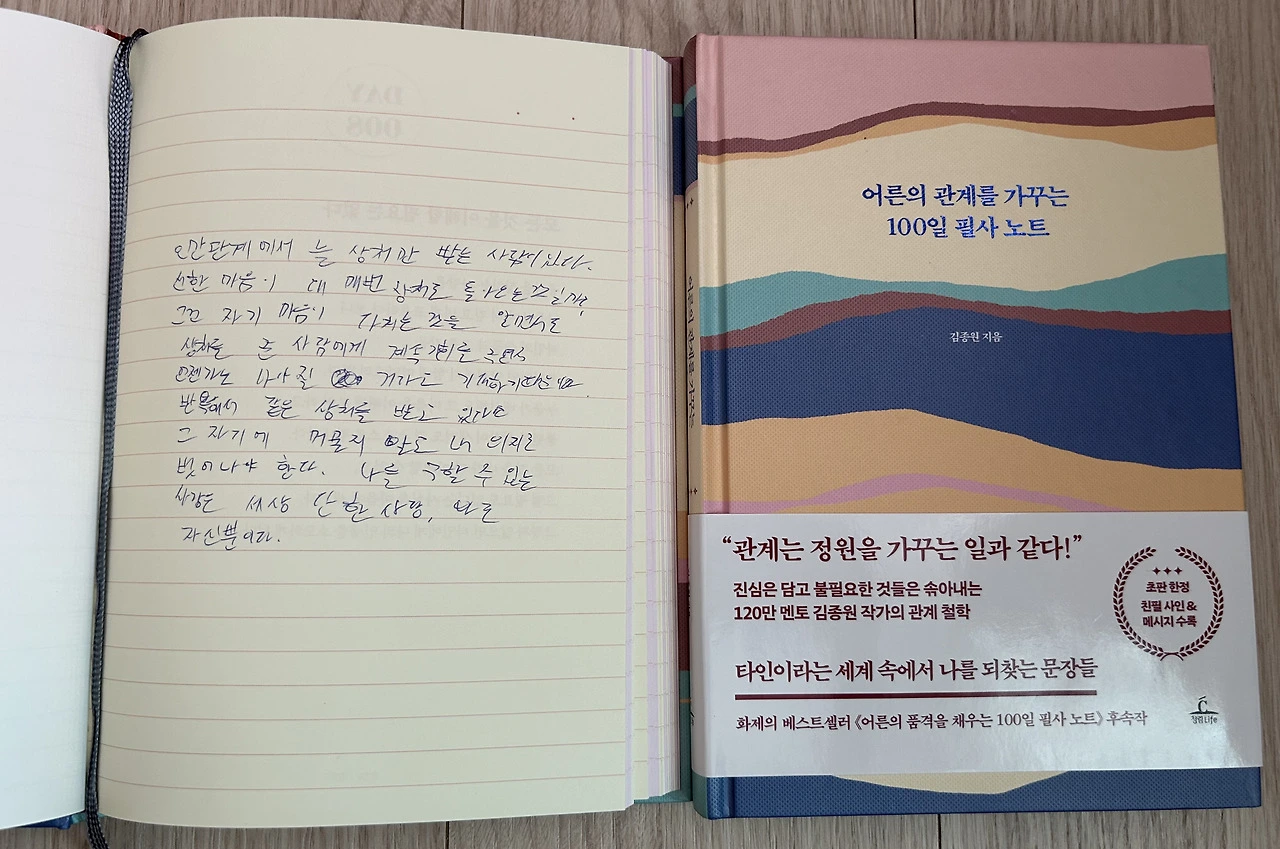 인간관계에서 늘 상처만 받는 사람이 있다.
선한 마음이 왜 매번 상처로 돌아오는 것일까?
그건 자기 마음이 다치는 것을 알면서도
상처를 준 사람에게 계속 기회를 주면서
언젠가는 나아질 거라고 기대하기 때문이다.
반복해서 같은 상처를 받고 있다면
그 자리에 머물지 말고 내 의지로
벗어나야 한다. 나를 구할 수 있는
사람은 세상 단 한 사람, 바로
자신뿐이다.
어른의 관계를 가꾸는
100일 필사 노트
김종원 지음
어른의 관계를 가꾸는
“관계는 정원을 가꾸는 일과 같다!”
진심은 담고 불필요한 것들은 솎아내는
120만 멘토 김종원 작가의 관계 철학
초판 한정
친필 사인 &
메시지 수록
타인이라는 세계 속에서 나를 되찾는 문장들
화제의 베스트셀러 《어른의 품격을 채우는 100일 필사 노트》 후속작
청림Life
DAY
008
모든 것을 이해할 필요는 없다